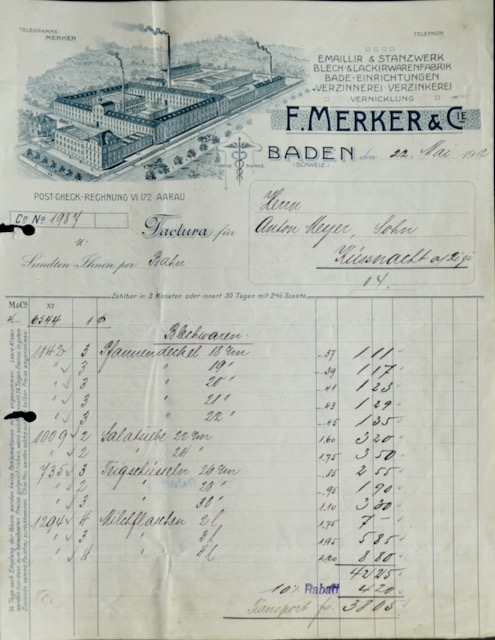 TELEGRAMME:
MERKER
TELEPHON
EMAILLIR & STANZWERK
BLECH-& LACKIRWARENFABRIK
BADE-EINRICHTUNGEN
VERZINNEREI-VERZINKEREI
VERNICKLUNG
F. MERKER & CIE
BADEN den 22. Mai 1912
(SCHWEIZ)
FABRIK MARKE
POSTCHECK-RECHNUNG VI 172 AARAU
Co No 1987
Factura für
Herrn
Anton Meyer, Sohn
Küssnacht a/Rigi
Sandten Ihnen per Bahn
Zahlbar in 3 Monaten oder innert 30 Tagen mit 2% Sconto
M & Cie. No
6344 1
Blechwaren.
1042 3 Pfannendeckel 18 cm -.37 1 11
" 3 " 19 " -.39 1 17
" 3 " 20 " -.41 1 23
" 3 " 21 " -.43 1 29
" 3 " 22 " -.45 1 35
1009 2 Salatsiebe 22 cm 1.60 3 20
" 2 " 24 " 1.75 3 50
735 3 Teigschüsseln 26 cm -.85 2 55
" 2 " 28 " -.95 1 90
" 3 " 30 " 1.10 3 30
1294 4 Milchflaschen 2 l 1.75 7 -
" 3 " 3 l 1.95 5 85
" 4 " 4 l 2.20 8 80
42 25
10% Rabatt 4 20
Transport fr. 38 05